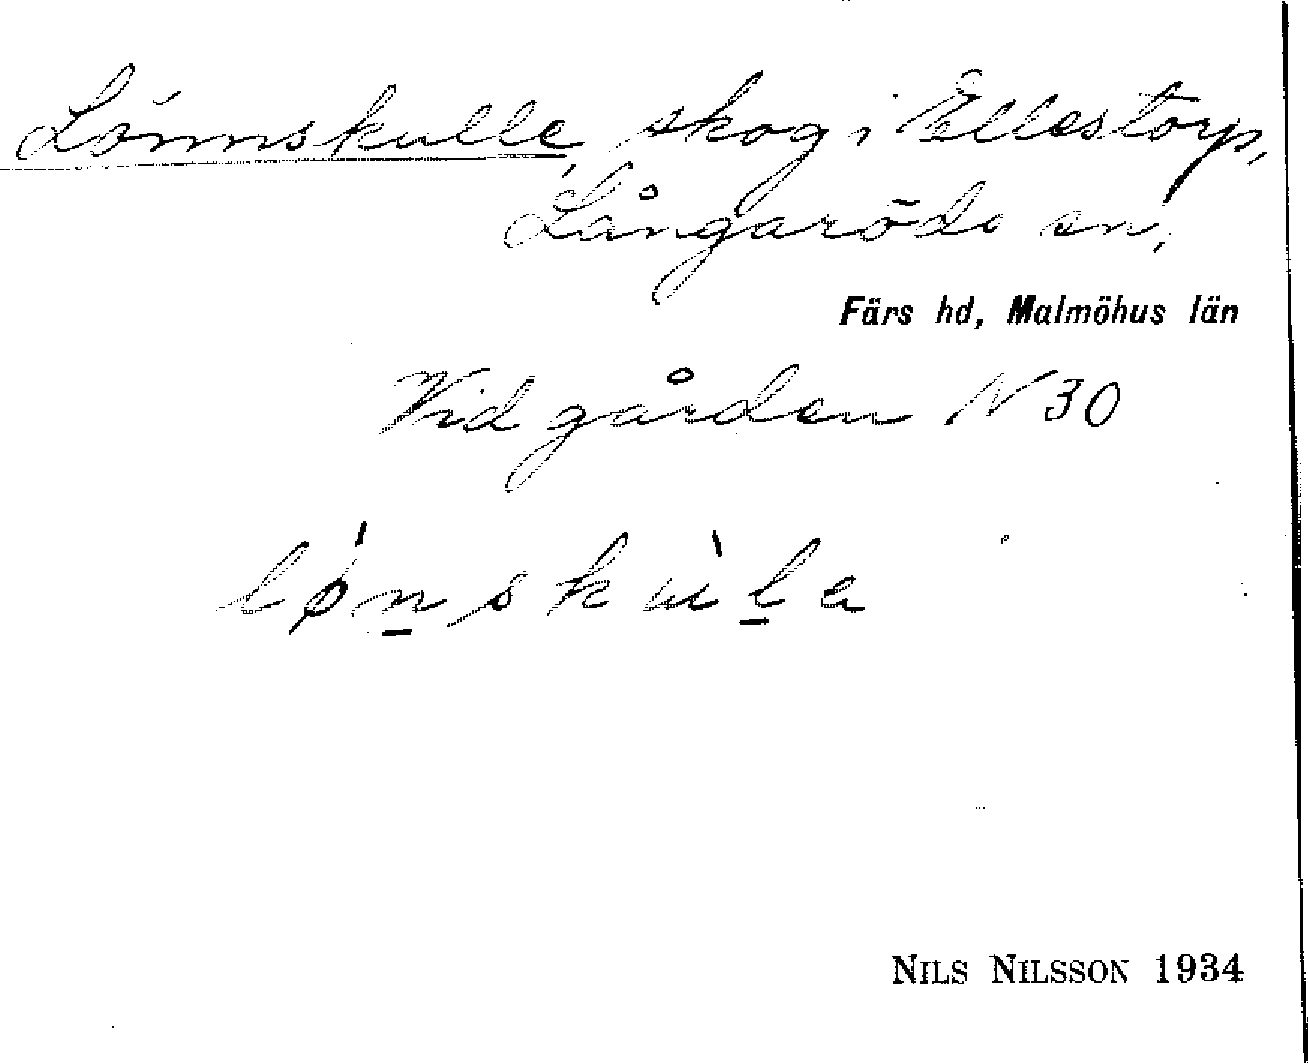 Lönnskulle, skog i Ellestorp,
Långaröds sn,
Färs hd, Malmöhus län
Vid gården N 30
lǿn̲skùl̲a
NILS NILSSON 1934